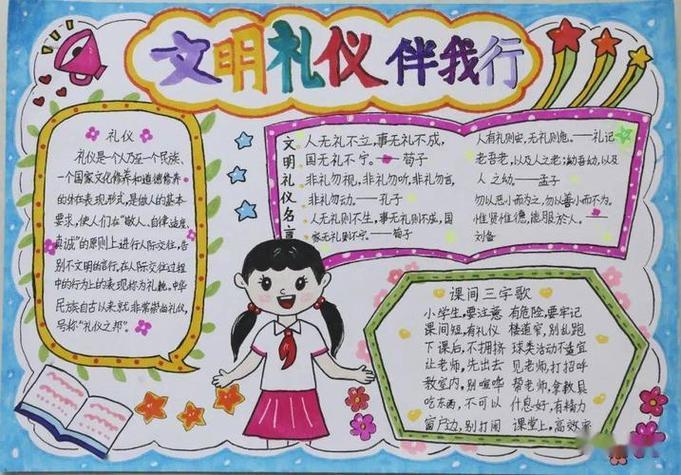 文明礼仪伴我行
礼仪
礼仪是个人乃至一个民族、
一个国家文化修养和道德修养
的外在表现形式,是做人的基本
要求,使人们在"敬人、自律、适度、
真诚"的原则上进行人际交往,告
别不文明的言行。在人际交往过程
中的行为上的表现称为礼貌。中华
民族自古以来就非常崇尚礼仪,
号称"礼仪之邦"。
文明礼仪名言
人无礼不立,事无礼不成,
国无礼不宁。——荀子
非礼勿视,非礼勿听,非礼勿言,
非礼勿动。——孔子
人无礼则不生,事无礼则不成,国
家无礼则不宁。——荀子
人有礼则安,无礼则危。——礼记
老吾老,以及人之老;幼吾幼,以及
人之幼。——孟子
勿以恶小而为之,勿以善小而不为。
惟贤惟德,能服於人。——
刘备
课间三字歌
小学生,要注意 有危险,要牢记
课间短,有礼仪 楼道窄,别乱跑
下课后,不拥挤 球类活动不适宜
让老师,先出去 见老师,打招呼
教室内,别喧哗 帮老师,拿教具
吃东西,不可以 休息好,有精力
窗户边,别打闹 课堂上,高效率